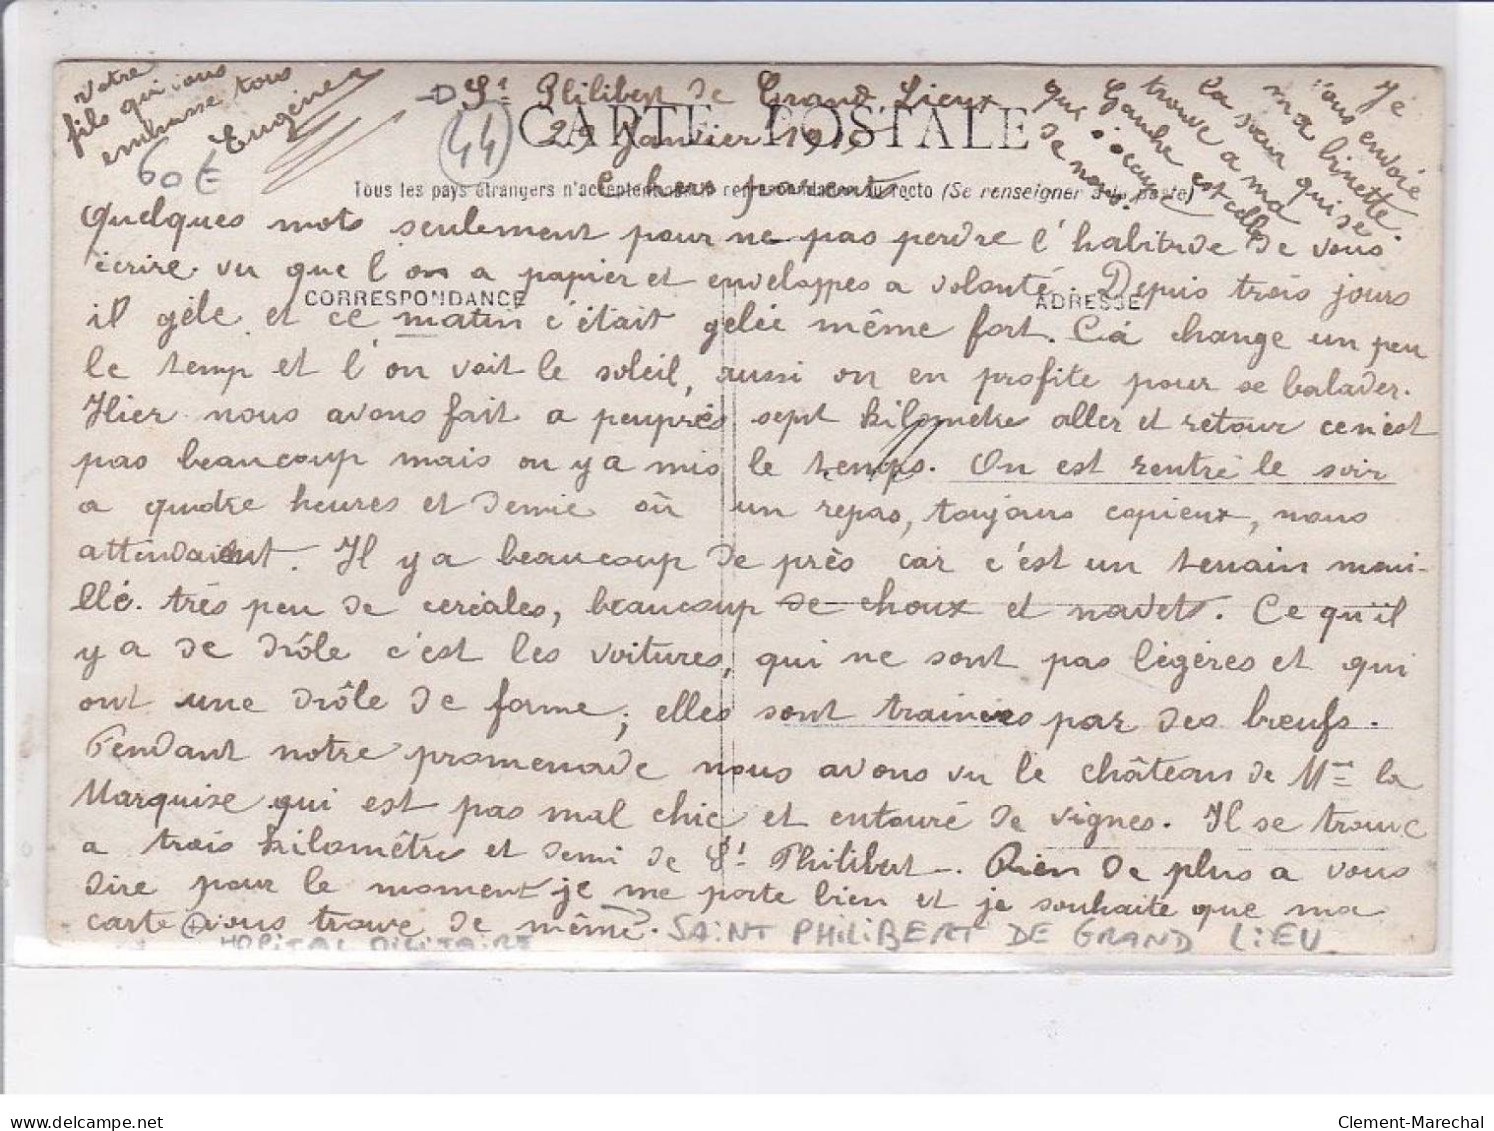 St Philibert de Grand Lieux
(44)
CARTE POSTALE
29 Janvier 1915
Chers parents
Tous les pays étrangers n'acceptent pas la correspondance au recto (Se renseigner à la poste)
Quelques mots seulement pour ne pas perdre l'habitude de vous
écrire vu que l'on a papier et enveloppes a volonté. Depuis trois jours
CORRESPONDANCE
ADRESSE
il gèle et ce matin c'était gelée même fort. Cà change un peu
le temp et l'on voit le soleil, aussi on en profite pour se balader.
Hier nous avons fait a peuprès sept kilometres aller et retour cen'est
pas beaucoup mais on y a mis le temps. On est rentré le soir
a quatre heures et demie où un repas, toujours copieux, nous
attendaient. Il y a beaucoup de près car c'est un terrain moui-
llé. très peu de céréales, beaucoup de choux et navets. Ce qu'il
y a de drôle c'est les voitures, qui ne sont pas légères et qui
ont une drôle de forme; elles sont trainées par des bœufs.
Pendant notre promenade nous avons vu le château de Mme la
Marquise qui est pas mal chic et entouré de vignes. Il se trouve
a trois kilomêtres et demi de St Philibert. Rien de plus a vous
dire pour le moment je me porte bien et je souhaite que ma
carte vous trouve de même.
Je
vous envoie
ma binette.
La sœur qui se
trouve a ma
Gauche est celle
qui s'occupe
de nous.
Votre
fils qui vous
embrasse tous
Eugène
60€
HOPITAL MILITAIRE
SAINT PHILIBERT DE GRAND LIEU
delcampe.net
Clement-Marechal